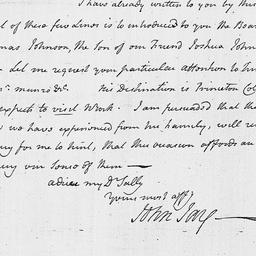 I have already written to you by this
of these few Lines is to introduce to you the Bear
mas Johnson, the Son of our Friend Joshua John
Let me request your particular attention to him
His Destination is Princeton Col
expects to visit York. I am persuaded that the
we have experienced from his Family, will re
ing for me to hint, that this occasion affords an
ing our sense of them —
adieu my Dr Sally
Yours most affy
John Jay —